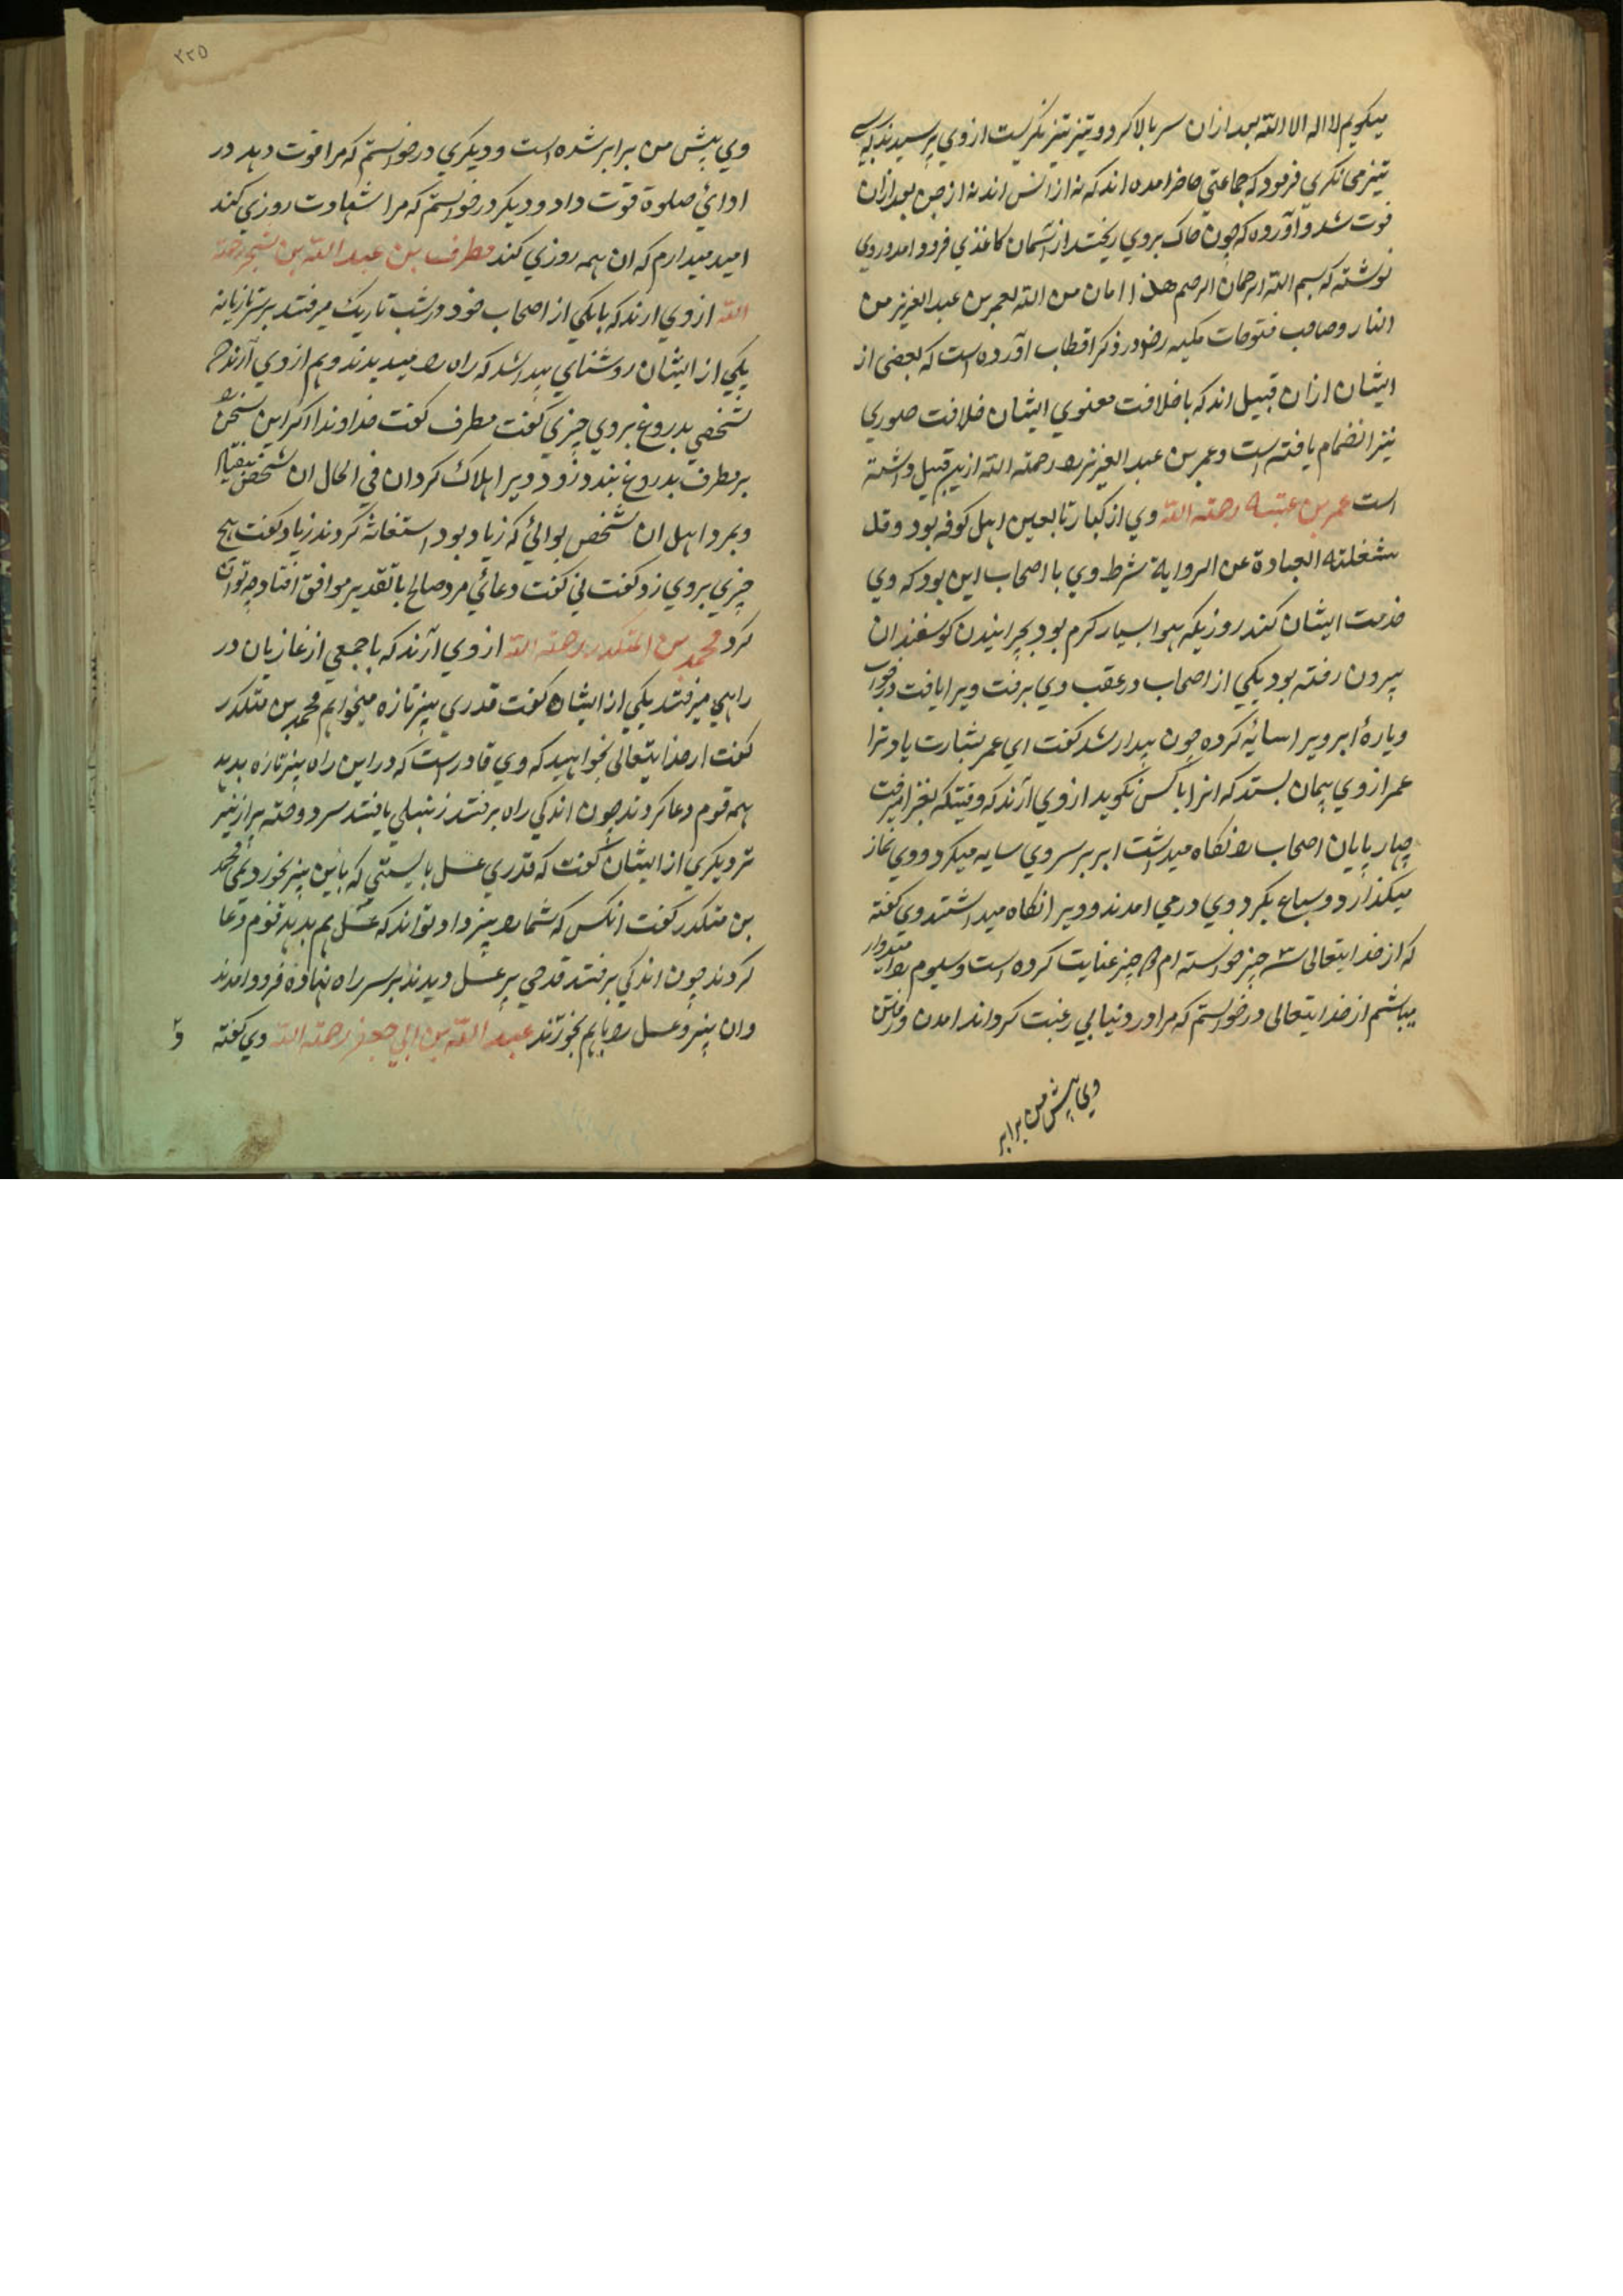 میکویم لا اله الا الله بعد ازان سر بالا کرد و تیز تیز نکریست از وی پرسیدند که
تیز می نکری فرمود که جماعتی حاضر امده اند که نه از انس اند نه از جن بعد ازان
فوت شد و آورده که چون خاک بروی ریختند از آسمان کاغذی فرود امد و روی
نوشته که بسم الله الرحمان الرحیم هذا امان من الله لعمر بن عبد العزیز من
النار و صاحب فتوحات مکیه رضو در ذکر اقطاب آورده است که بعضی از
ایشان ازان قبیل اند که با خلافت معنوی ایشان خلافت صوری
نیز انضمام یافته است و عمر بن عبد العزیز را رحمته الله ازین قبیل داشته
است عمر بن عتبه رحمته الله وی از کبار تابعین اهل کوفه بود و قد
شغلته العبادة عن الروایة شرط وی با اصحاب این بود که وی
خدمت ایشان کند روزیکه هوا بسیار کرم بود بچرانیدن کوسفندان
بیرون رفته بود یکی از اصحاب در عقب وی برفت ویرا یافت در خواب
و پارۀ ابر ویرا سایه کرده چون بیدار شد کفت ای عمر بشارت باد ترا
عمر از وی پیمان بستد که انرا با کس نکوید از وی آرند که وقتیکه بغزا میرفت
چهار پایان اصحاب را نکاه میداشت ابر بر سر وی سایه میکرد و وی نماز
میکذارد و سباع بکرد وی درمی امدند و ویرا نکاه میداشتند وی کفته
که از خدایتعالی سه چیز خواسته ام دو چیز عنایت کرده است و سیوم را امیدوار
میباشم از خدایتعالی درخواستم که مرا در دنیا بی رغبت کرداند امدن و رفتن
وی پیش من برابر
۲۲۵
وی پیش من برابر شده است و دیکری درخواستم که مرا قوت دهد در
ادائ صلوة قوت داد و دیکر درخواستم که مرا شهادت روزی کند
امید میدارم که ان همه روزی کند مطرف بن عبد الله بن شخیر رحمة
الله از وی ارند که با یکی از اصحاب خود در شب تاریک میرفتند بر سر تازیانه
یکی از ایشان روشنای پیدا شد که راه را میدیدند و هم از وی آرند که
شخصی بدروغ بروی چیزی کفت مطرف کفت خداوندا اکر این سخن
بر مطرف بدروغ بندد زود ویرا هلاک کردان فی الحال ان شخص بیفتاد
و بمرد اهل ان شخص بوالئ که زیاد بود استغاثه کردند زیاد کفت هیچ
چیزی بروی زد کفت نی کفت دعائی مرد صالح با تقدیر موافق افتاد چه توان
کرد محمد بن المنکدر رحمته الله از وی آرند که با جمعی از غازیان در
راهی میرفتند یکی از ایشان کفت قدری پنیر تازه میخواهم محمد بن منکدر
کفت از خدایتعالی بخواهید که وی قادر است که در این راه پنیر تازه بدهد
همه قوم دعا کردند چون اندکی راه برفتند زنبیلی یافتند سر دوخته پر از پنیر
تر دیکری از ایشان کفت که قدری عسل بایستی که باین پنیر بخوردیمی محمد
بن منکدر کفت انکس که شما را پنیر داد تواند که عسل هم بدهد قوم دعا
کردند چون اندکی برفتند قدحی پر عسل دیدند بر سر راه نهاده فرود امدند
و ان پنیر و عسل را باهم بخوردند عبد الله بن ابی جعفر رحمته الله وی کفته